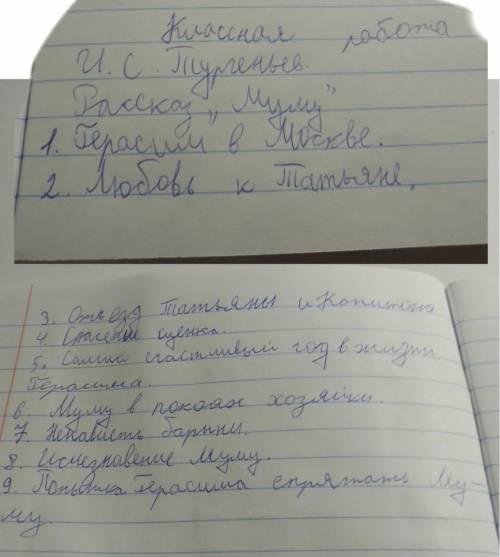 Классная работа
И. С. Тургеньев.
Рассказ „Муму"
1. Герасим в Москве.
2. Любовь к Татьяне.
3. Отъезд Татьяны и Капитона
4. Спасение щенка.
5. Самый счастливый год в жизни
Герасима.
6. Муму в покоях хозяйки.
7. Ненависть барыни.
8. Исчезнавение Муму.
9. Попытка Герасима спрятать Му-
му.